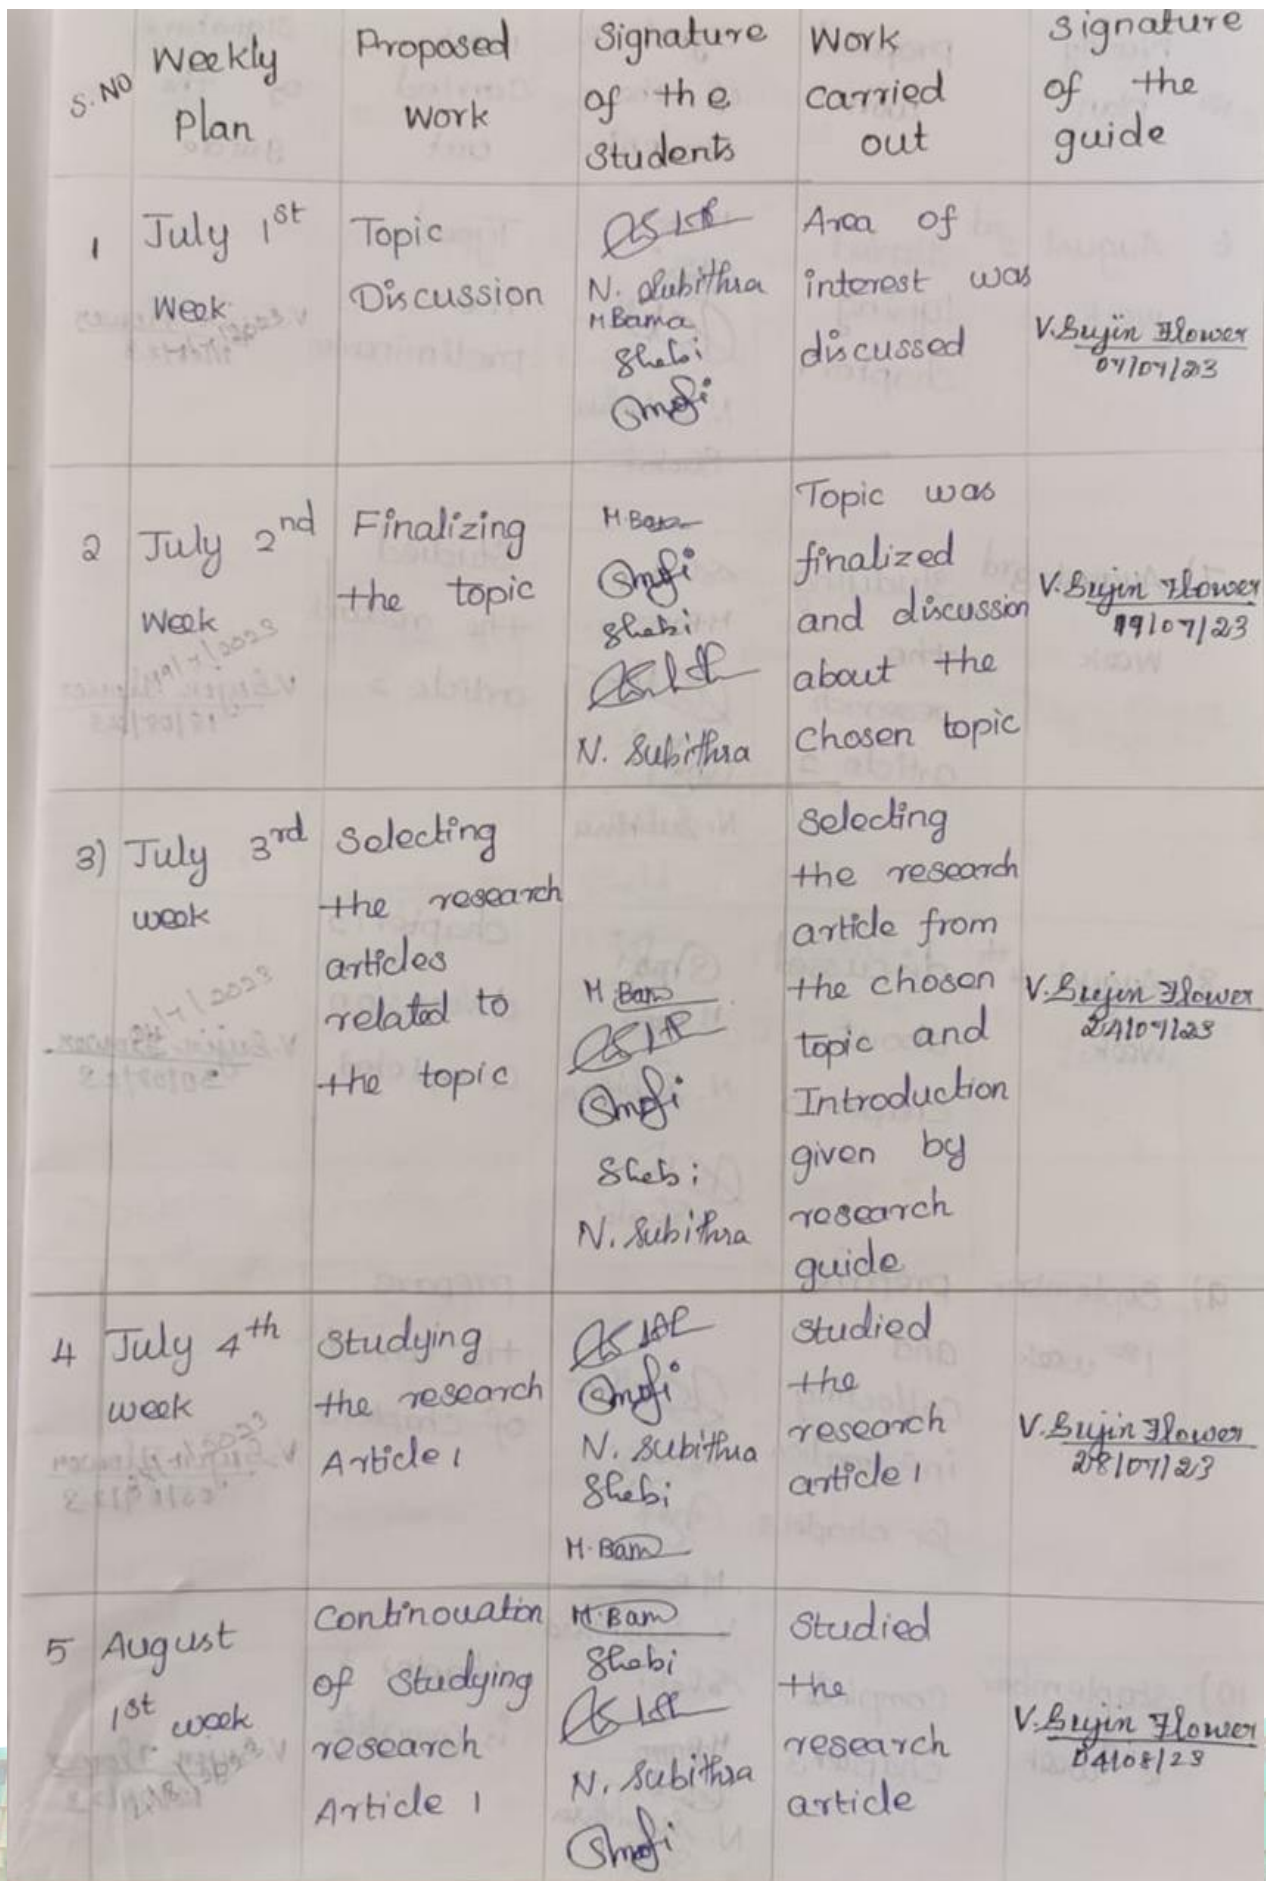 S. NO
Weekly
Plan
Proposed
Work
Signature
of the
Students
Work
carried
out
Signature
of the
guide
1
July 1st
Week
Topic
Discussion
N. Subithra
M Bama
Shebi
Area of
interest was
discussed
V. Sujin Flower
07/07/23
2
July 2nd
Week
Finalizing
the topic
M. Bama
Shebi
N. Subithra
Topic was
finalized
and discussion
about the
chosen topic
V. Sujin Flower
19/07/23
3)
July 3rd
week
Selecting
the research
articles
related to
the topic
M Bam
Shebi
N. Subithra
Selecting
the research
article from
the chosen
topic and
Introduction
given by
research
guide
V. Sujin Flower
24/07/23
4
July 4th
week
Studying
the research
Article 1
N. Subithra
Shebi
M. Bam
Studied
the
research
article 1
V. Sujin Flower
28/07/23
5
August
1st week
Continouation
of Studying
research
Article 1
M. Bam
Shebi
N. Subithra
Studied
the
research
article
V. Sujin Flower
04/08/23